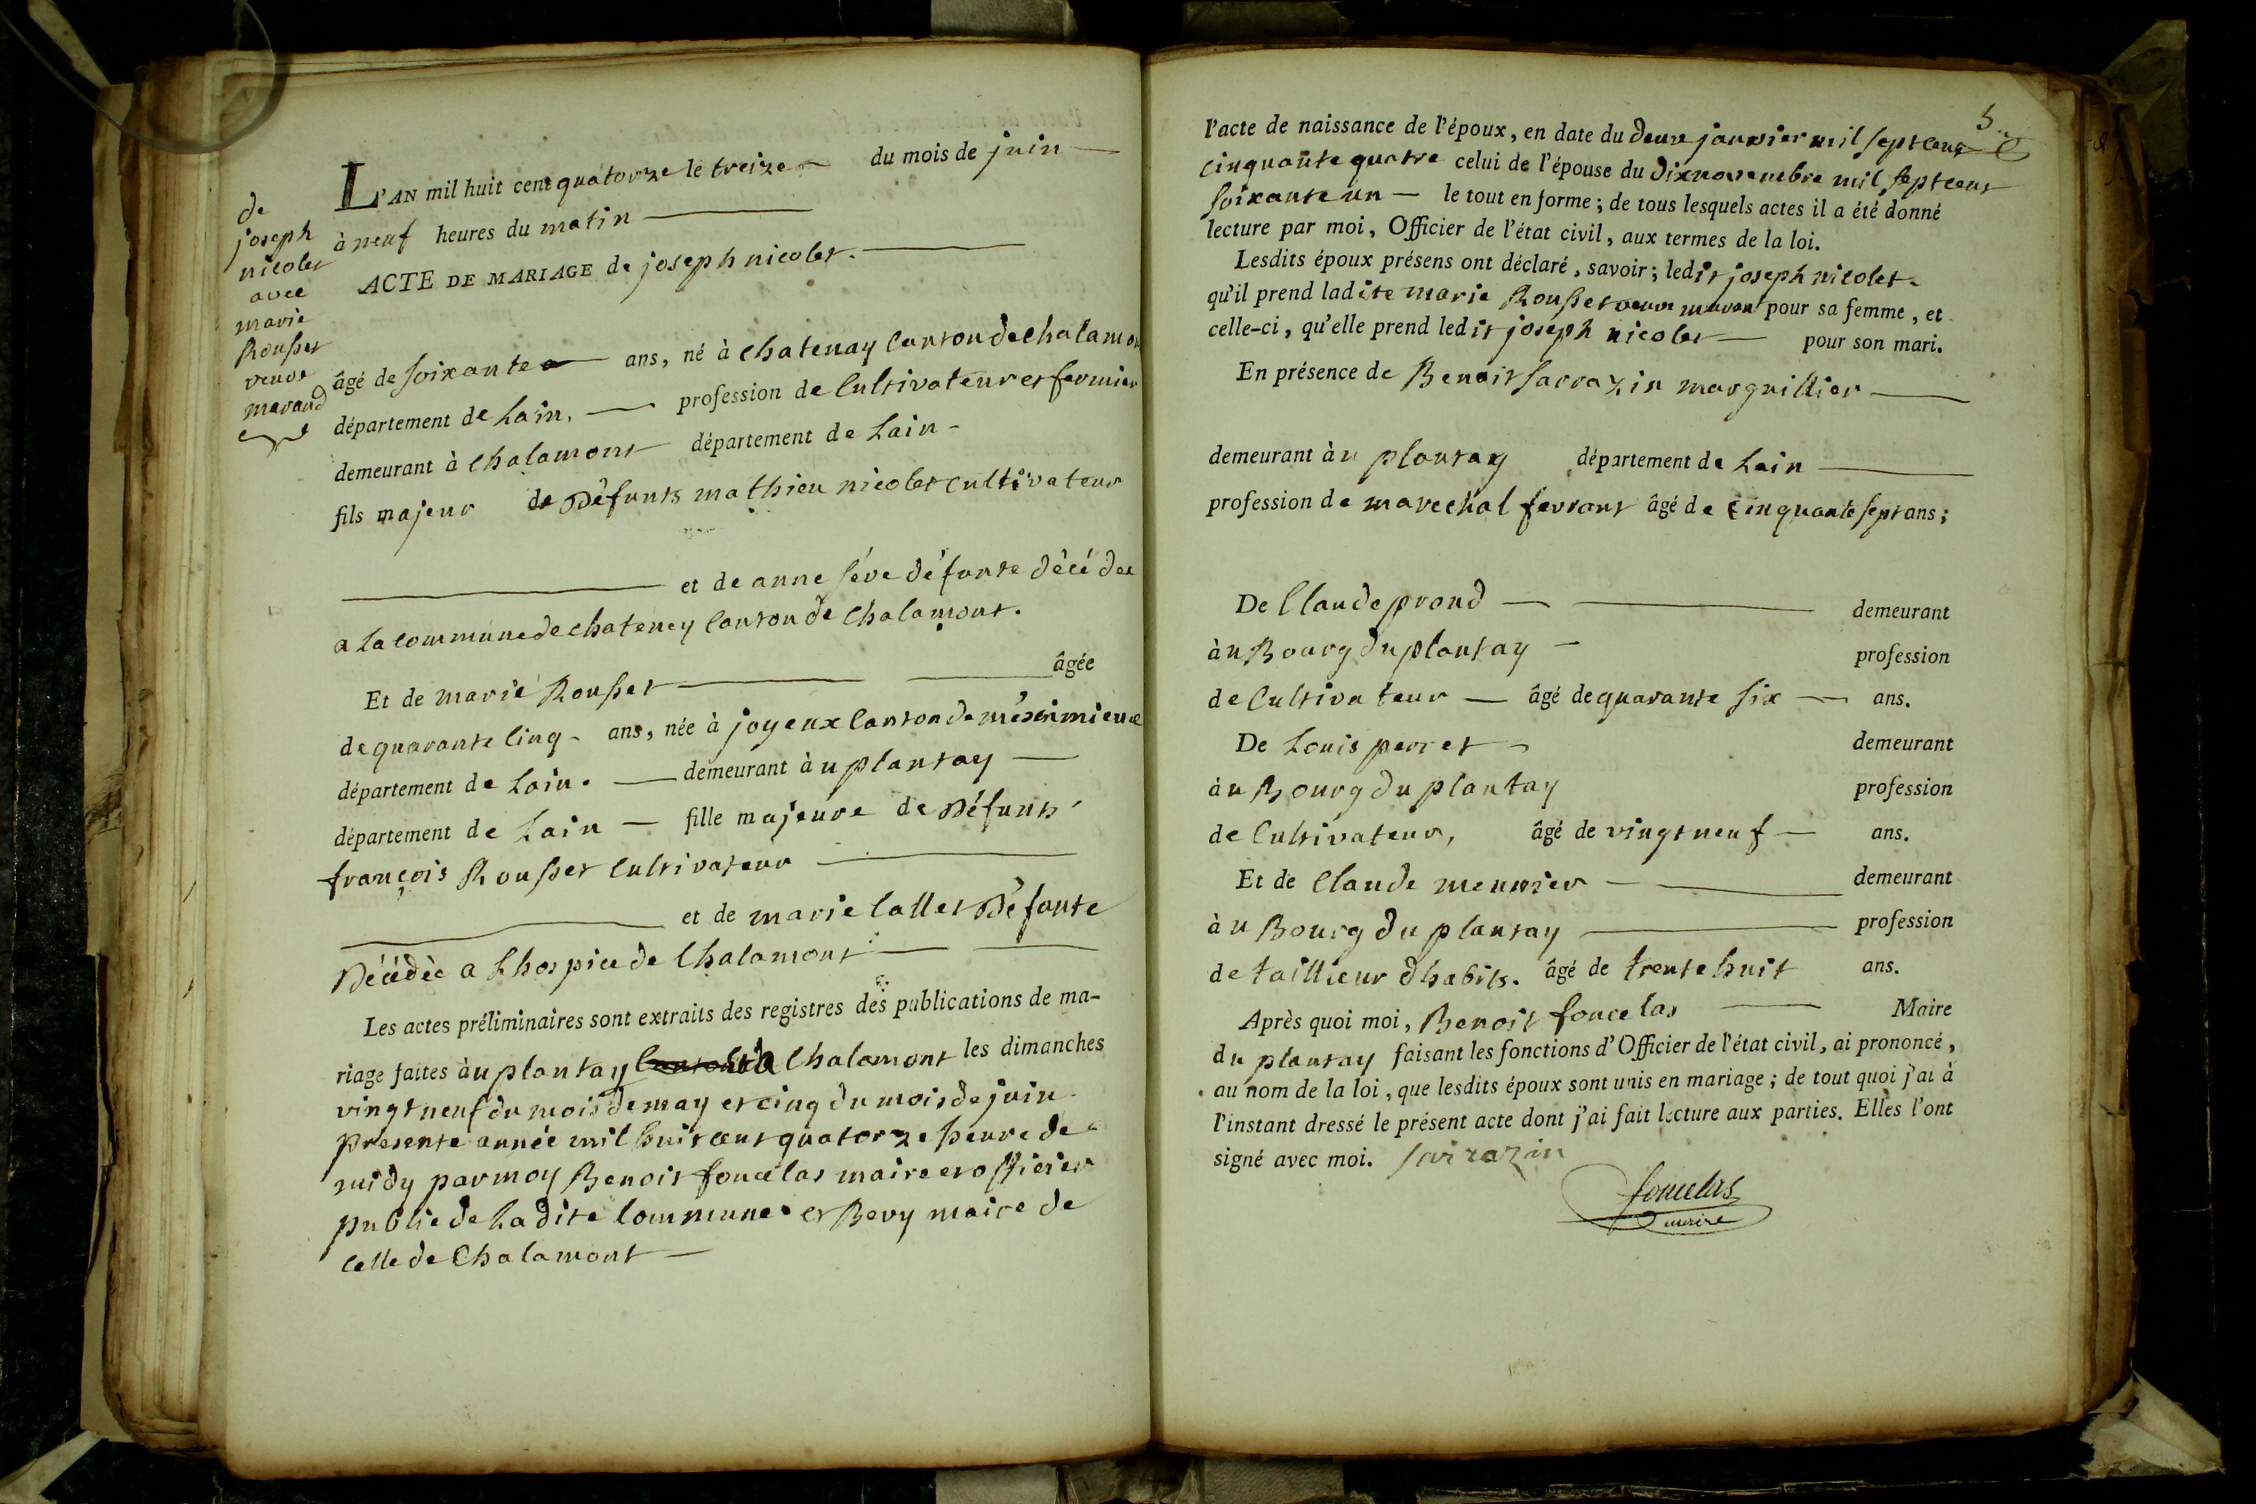 de
joseph
nicolet
avec
marie
Rousset
veuve
marand
L'AN mil huit cent quatorze le treize du mois de juin
à neuf heures du matin
ACTE DE MARIAGE de joseph nicolet.
âgé de soixante ans, né à chatenay Canton de chalamon
département de Lain, profession de Cultivateur et fermier
demeurant à Chalamont département de Lain
fils majeur de Défunts mathieu nicolet cultivateur
et de anne séve défunte décédée
a la commune de chateney Canton de Chalamont.
Et de marie Rousset âgée
de quarante cinq ans, née à joyeux Canton de méximieux
département de Lain. demeurant à u plantay
département de Lain fille majeure de Défunts
françois Rousset Cultivateur
et de marie Lallet Défunte
Décédée a Lhospice de Chalamont
Les actes préliminaires sont extraits des registres des publications de ma-
riage faites àu plantay Chalamont les dimanches
vingt neuf du mois de may et cinq du mois de juin
presente année mil huit cent quatorze heure de
midy par moy Benoit foucelas maire et officier
public de La dite Commune et Bevy maire de
Celle de Chalamont
5
l'acte de naissance de l'époux, en date du deux janvier mil sept cent
cinquante quatre celui de l'épouse du dix novembre mil sept cent
soixante un le tout en forme; de tous lesquels actes il a été donné
lecture par moi, Officier de l'état civil, aux termes de la loi.
Lesdits époux présens ont déclaré, savoir; ledit joseph nicolet
qu'il prend ladite marie Rousset veuve maran pour sa femme, et
celle-ci, qu'elle prend ledit joseph nicolet pour son mari.
En présence de Benoit Sarrazin marguillier
demeurant àu plantay département de Lain
profession de marechal ferrant âgé de cinquante sept ans;
De Claude prond demeurant
àu Bourg du plantay profession
de Cultivateur âgé de quarante six ans.
De Louis perret demeurant
àu Bourg du plantay profession
de Cultivateur, âgé de vingt neuf ans.
Et de Claude meunier demeurant
àu Bourg du plantay profession
de taillieur dhabits. âgé de trente huit ans.
Après quoi moi, Benoit foucelas Maire
du plantay faisant les fonctions d'Officier de l'état civil, ai prononcé,
au nom de la loi, que lesdits époux sont unis en mariage; de tout quoi j'ai à
l'instant dressé le présent acte dont j'ai fait lecture aux parties. Elles l'ont
signé avec moi. Sarrazin
foucelas
maire